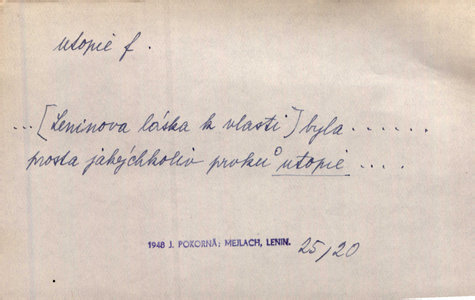 utopie f.
... [Leninova láska k vlasti] byla ......
prosta jakýchkoliv prvků utopie ....
1948 J. POKORNÁ; MEJLACH, LENIN. 25/20